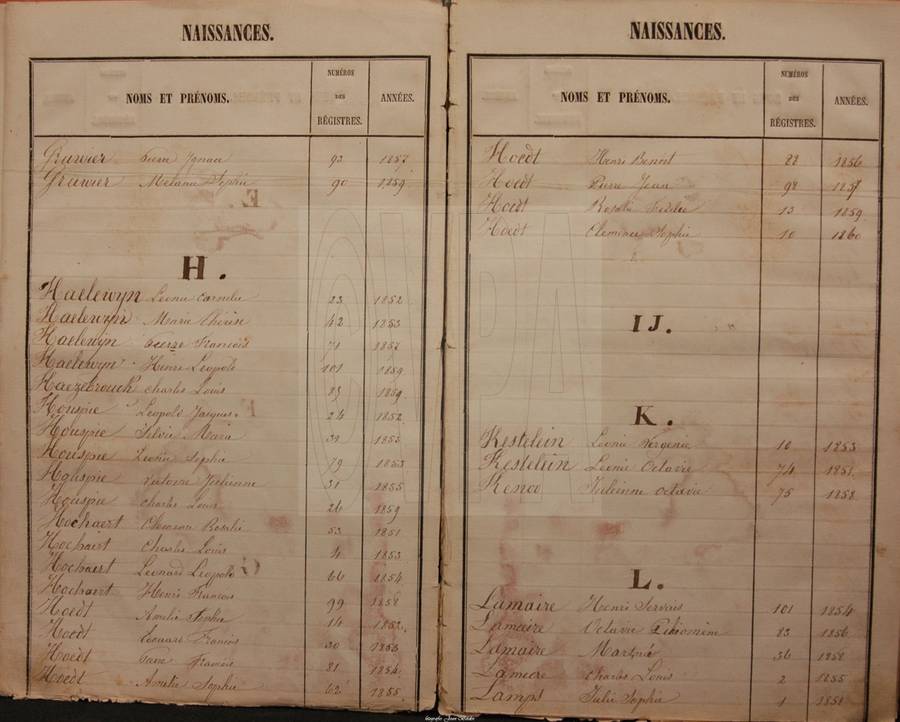 NAISSANCES.
NOMS ET PRÉNOMS. NUMÉROS DES RÉGISTRES. ANNÉES.
Gruwier Pierre Ignace 92 1857
Gruwier Mélanie Sophie 90 1859
H.
Haelewyn Léonie Cornélie 23 1852
Haelewyn Marie Thérèse 42 1853
Haelewyn Pierre François 71 1857
Haelewyn Henri Léopold 101 1859
Haezebrouck Charles Louis 83 1859
Houspie Léopold Jacques 24 1852
Houspie Silvie Maria 1853
Houspie Léonie Sophie 79 1853
Houspie Julienne 31 1855
Houspie Charles Louis 26 1859
Hochaert Rosalie 53 1851
Hochaert Charles Louis 4 1853
Hochaert Léonard Léopold 66 1854
Hochaert Henri François 99 1858
Hoedt Amélie Sophie 14 1852
Hoedt Edouard François 30 1853
Hoedt François 81 1854
Hoedt Amélie Sophie 62 1855
NAISSANCES.
NOMS ET PRÉNOMS. NUMÉROS DES RÉGISTRES. ANNÉES.
Hoedt Henri Benoit 22 1856
Hoedt Pierre Jean 92 1857
Hoedt Rosalie 13 1859
Hoedt Clemence Sophie 10 1860
IJ.
K.
Kestelein Léonie Vergenie 10 1853
Kestelein Léonie Octavie 74
Kenoo Julienne Octavie 75 1858
L.
Lamaire Henri Servais 101 1854
Lamaire Octavie Philomène 83 1856
Lamaire 36 1858
Lamaire Charles Louis 2 1855
Lamps Julie Sophie 1 1851
CHPA